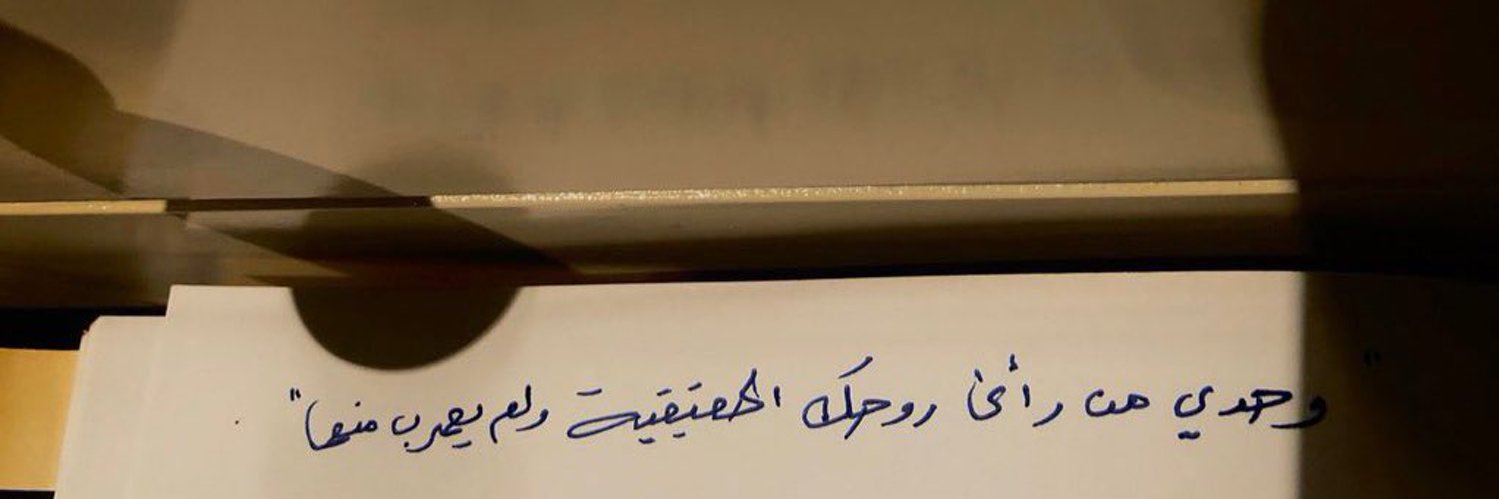 "وحدي من رأى روحك الحقيقية ولم يهرب منها"